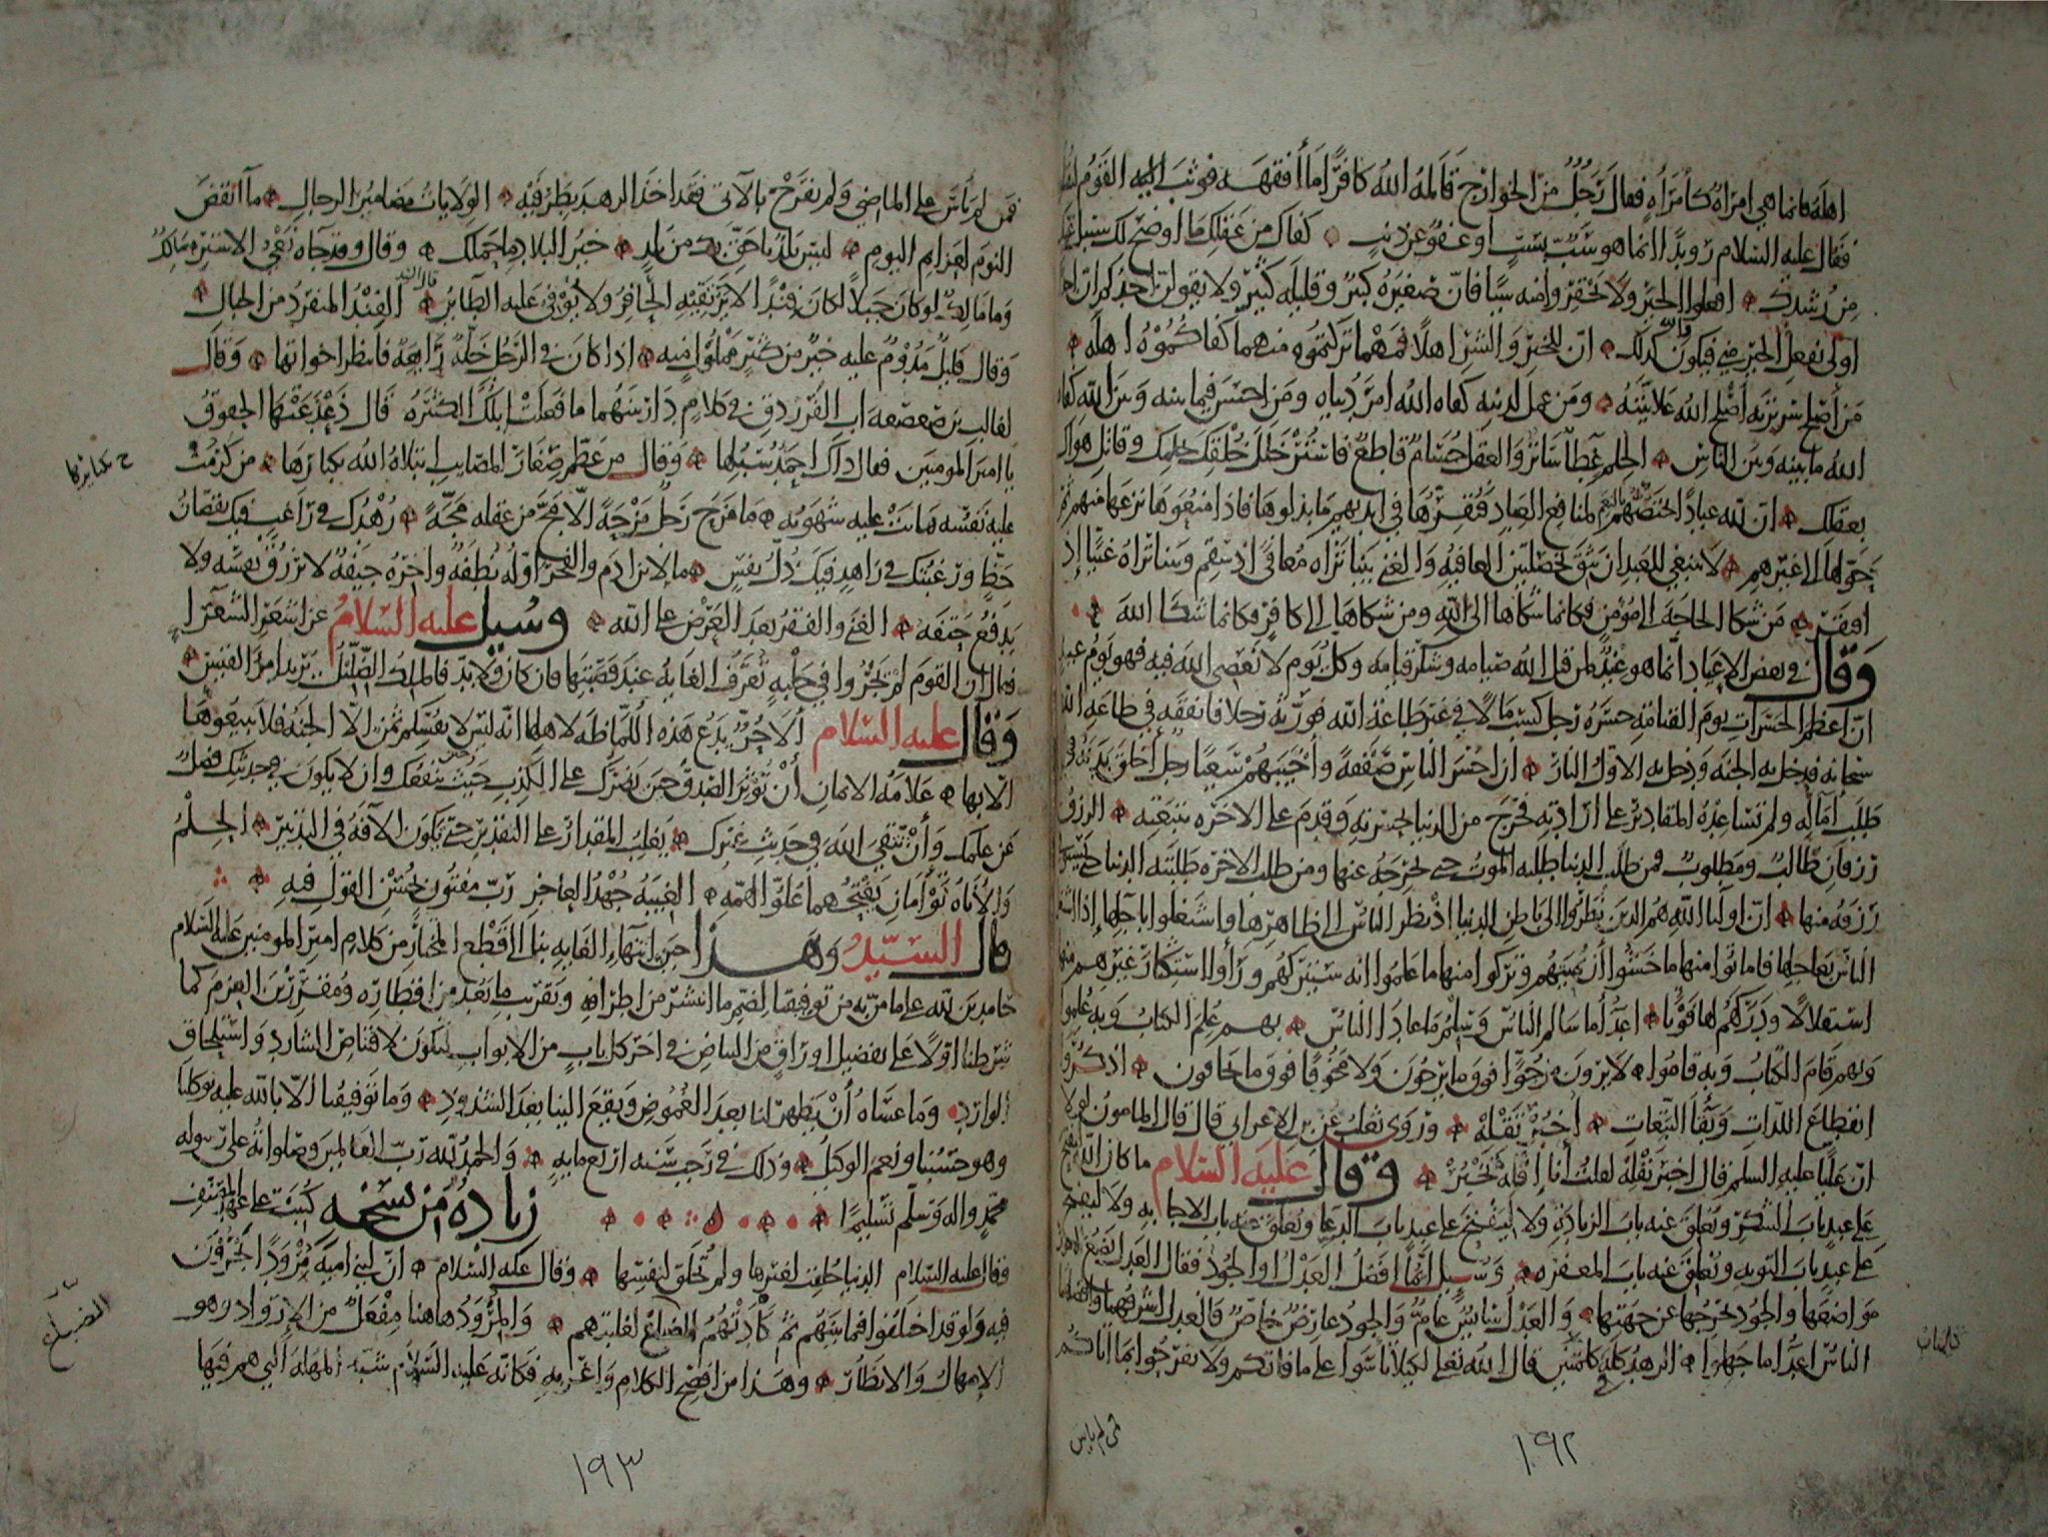 اهله فانما هي امرأة كامرأة فقال رجل من الخوارج قاتله الله كافرا ما أفقهه فوثب اليه القوم
فقال عليه السلام رويدا انما هو سب بسب او عفو عن ذنب كفاك من عقلك ما اوضح لك سبيل
من رشدك افعلوا الخير ولا تحقروا منه شيا فان صغيره كبير وقليله كثير ولا يقولن احدكم ان
اولى بفعل الخير مني فيكون والله كذلك ان للخير والشر اهلا فمهما تركتموه منهما كفاكموه اهله
من أصلح سريرته أصلح الله علانيته ومن عمل لدينه كفاه الله امر دنياه ومن احسن فيما بينه وبين الله كفاه
الله ما بينه وبين الناس الحلم غطا ساتر والعقل حسام قاطع فاستر خلل خلقك بحلمك وقاتل هواك
بعقلك ان لله عبادا اختصهم بالنعم لمنافع العباد فيقرها في ايديهم ما بذلوها فاذا منعوها نزعها منهم ثم
حولها الى غيرهم لا ينبغي للعبد ان يثق بخصلتين العافية والغنى بينا تراه معافى اذ سقم وبينا تراه غنيا إذ
افتقر من شكا الحاجة الى مؤمن فكانما شكاها الى الله ومن شكاها الى كافر فكانما شكا الله
وقال في بعض الاعياد انما هو عيد لمن قبل الله صيامه وشكر قيامه وكل يوم لا نعصي الله فيه فهو يوم عيد
ان اعظم الحسرات يوم القيامة حسرة رجل كسب مالا في غير طاعة الله فورثه رجلا فانفقه في طاعة الله
سبحانه فدخل به الجنة ودخل به الاول النار ان اخسر الناس صفقة وأخيبهم سعيا رجل أخلق بدنه في
طلب آماله ولم تساعده المقادير على ارادته فخرج من الدنيا بحسرته وقدم على الاخرة بتبعته الرزق
رزقان طالب ومطلوب فمن طلب الدنيا طلبه الموت حتى يخرجه عنها ومن طلب الاخرة طلبته الدنيا حتى يستوفي
رزقه منها ان اوليا الله هم الذين نظروا الى باطن الدنيا اذ نظر الناس الى ظاهرها واشتغلوا باجلها إذا اشتغل
الناس بعاجلها فاماتوا منها ما خشوا أن يميتهم وتركوا منها ما علموا انه سيتركهم ورأوا استكثار غيرهم منها
استقلالا ودركهم لها فوتا اعدا ما سالم الناس وسلم ما عادا الناس بهم علم الكتاب وبه علموا
وبهم قام الكتاب وبه قاموا لا يرون مرجوا فوق ما يرجون ولا مخوفا فوق ما يخافون اذكروا
انقطاع اللذات وبقا التبعات أخبر تقله وروى ثعلب عن ابن الاعرابي قال قال المامون لولا
ان عليا عليه السلم قال اخبر تقله لقلت أنا إقله تخبر وقال عليه السلام ما كان الله ليفتح
على عبد باب الشكر ويغلق عنه باب الزيادة ولا ليفتح على عبد باب الدعا ويغلق عنه باب الاجابة ولا ليفتح
على عبد باب التوبة ويغلق عنه باب المغفرة وسيل ايما افضل العدل او الجود فقال العدل يضع الامور
مواضعها والجود يخرجها عن جهتها والعدل سايس عام والجود عارض خاص فالعدل اشرفهما وافضلهما
الناس اعدا ما جهلوا الزهد كله كلمتين قال الله تعلى لكيلا تاسوا على ما فاتكم ولا تفرحوا بما اتاكم
فمن لم ياس
١٩٢
فمن لم يأس على الماضي ولم يفرح بالآتي فقد اخذ الزهد بطرفيه الولايات مضامير الرجال ما أنقض
النوم لعزايم اليوم ليس بلد باحق بك من بلد خير البلاد ما حملك وقال وقد جاه نعي الاشتر مالك
وما مالك لو كان جبلا لكان فندا لا يرتقيه الحافر ولا يوفي عليه الطاير قال السيد الفند المنفرد من الجبال
وقال قليل مدوم عليه خير من كثير مملول منه اذا كان في الرجل خلة رايعة فانتظر اخواتها وقال
لغالب بن صعصعة اب الفرزدق في كلام دار بينهما ما فعلت ابلك الكثيرة قال ذعذعتها الحقوق
يا امير المومنين فقال ذاك احمد سبلها وقال من عظم صغار المصايب ابتلاه الله بكبارها من كرمت
عليه نفسه هانت عليه شهوته ما مزح رجل مزحة الا مج من عقله مجة زهدك في راغب فيك نقصان
حظ ورغبتك في زاهد فيك ذل نفس ما لابن ادم والفخر اوله نطفة واخره جيفة لا يرزق نفسه ولا
يدفع حتفه الغنى والفقر بعد العرض على الله وسيل عليه السلام عن اشعر الشعرا
فقال ان القوم لم يجروا في حلبة تعرف الغاية عند قصبتها فان كان ولا بد فالملك الضليل يريد امرا القيس
وقال عليه السلام ألا حر يدع هذه اللماظة لاهلها انه ليس لانفسكم ثمن الا الجنة فلا تبيعوها
الا بها علامة الايمان أن تؤثر الصدق حيث يضرك على الكذب حيث ينفعك وان لا يكون في حديثك فضل
عن علمك وأن تتقي الله في حديث غيرك يغلب المقدار على التقدير حتى تكون الآفة في التدبير الحلم
والاناة توأمان ينتجهما علو الهمة الغيبة جهد العاجز رب مفتون بحسن القول فيه
قال السيد وهذا حين انتهاء الغاية بنا الى قطع المختار من كلام امير المومنين عليه السلام
حامدين لله على ما من به من توفيقنا لضم ما انتشر من اطرافه وتقريب ما بعد من اقطاره ومقررين العزم كما
شرطنا اولا على تفضيل اوراق من البياض في اخر كل باب من الابواب ليكون لاقتناص الشارد واستلحاق
الوارد وما عساه أن يظهر لنا بعد الغموض ويقع الينا بعد الشذوذ وما توفيقنا الا بالله عليه توكلنا
وهو حسبنا ونعم الوكيل وذلك في رجب سنة اربع ماية والحمد لله رب العالمين وصلواته على رسوله
محمد واله وسلم تسليما زيادة من نسخة كتبت على عهد المصنف
وقال عليه السلام الدنيا خلقت لغيرها ولم تخلق لنفسها وقال عليه السلام ان لبني امية مرودا يجرون
فيه ولو قد اختلفوا فيما بينهم ثم كادتهم الضباع لغلبتهم والمرود هاهنا مفعل من الارواد وهو
الامهال والانظار وهذا من افصح الكلام واغربه فكانه عليه السلام شبه المهلة التي هم فيها
بكبارها
الضباع
١٩٣